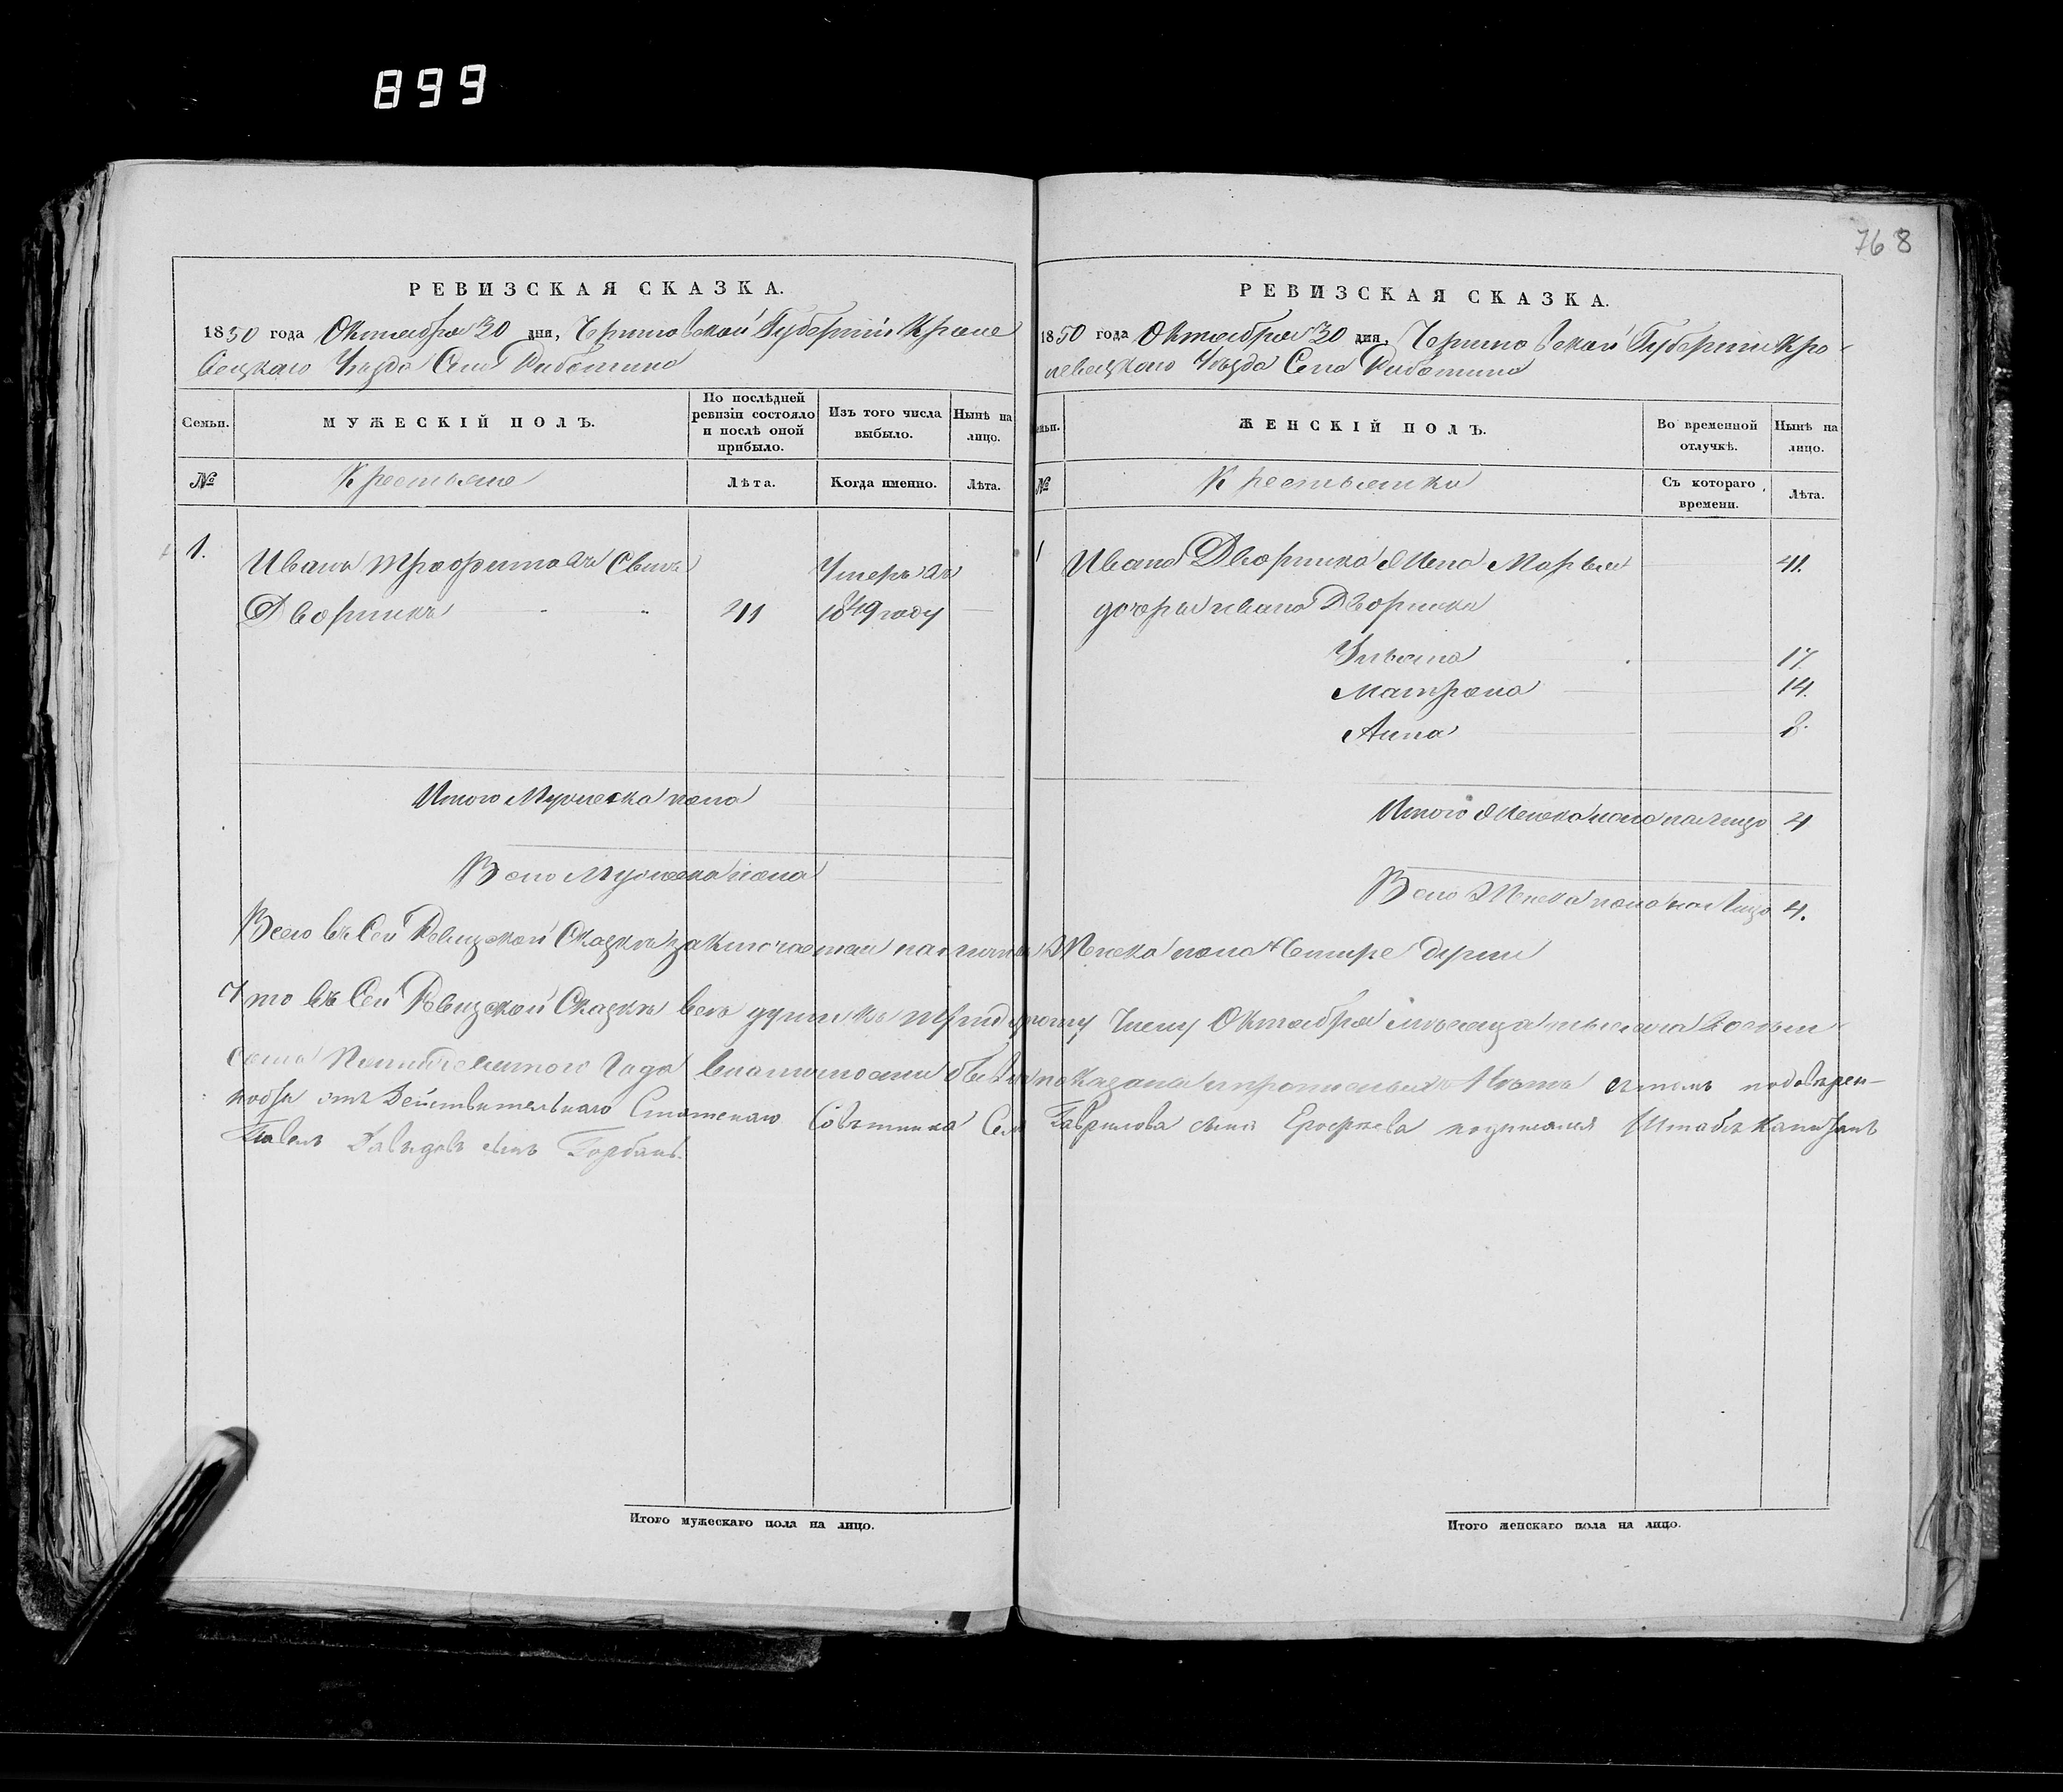 899
768
РЕВИЗСКАЯ СКАЗКА.
1850 года Октября 30 дня, Черниговской Губернии Кроле
вецкаго Уезда Села Риботина
Семьи.
МУЖЕСКІЙ ПОЛЪ.
По послѣдней ревизіи состояло и послѣ оной прибыло.
Изъ того числа выбыло.
Нынѣ на лицо.
№
Крестьяне
Лѣта.
Когда именно.
Лѣта.
1.
Иванъ Трофимовъ Сынъ
Умеръ въ
Дворникъ 41 1849 году
Итого Мужеска пола
Всего Мужеска пола
РЕВИЗСКАЯ СКАЗКА.
1850 года Октября 30 дня, Черниговской Губернии Кро-
левецкаго Уѣзда Села Риботина
Семьи.
ЖЕНСКІЙ ПОЛЪ.
Во временной отлучкѣ.
Нынѣ на лицо.
№
Крестьянки
Съ котораго времени.
Лѣта.
1 Ивана Дворника Жена Марья 41.
дочери Ивана Дворника
Ульяна 17.
Матрона 14.
Анна 8.
Итого Женска пола на лицо 4
Всего Женска пола на Лицо 4.
Всего въ Сей Ревизской Сказкѣ заключается на лицо Женска пола Четыре души
Что въ Сей Ревизской Сказкѣ всѣ души къ Числу Октября мѣсяца тысяча Восемь
сотъ Пятидесятого Года показана и прописныхъ Нѣтъ въ томъ по довѣрен-
ности отъ Действительнаго Статскаго Совѣтника Гаврилова сына подписался Штабсъ Капитанъ
Павелъ Давидовъ сынъ Горбань.
Итого мужескаго пола на лицо.
Итого женскаго пола на лицо.